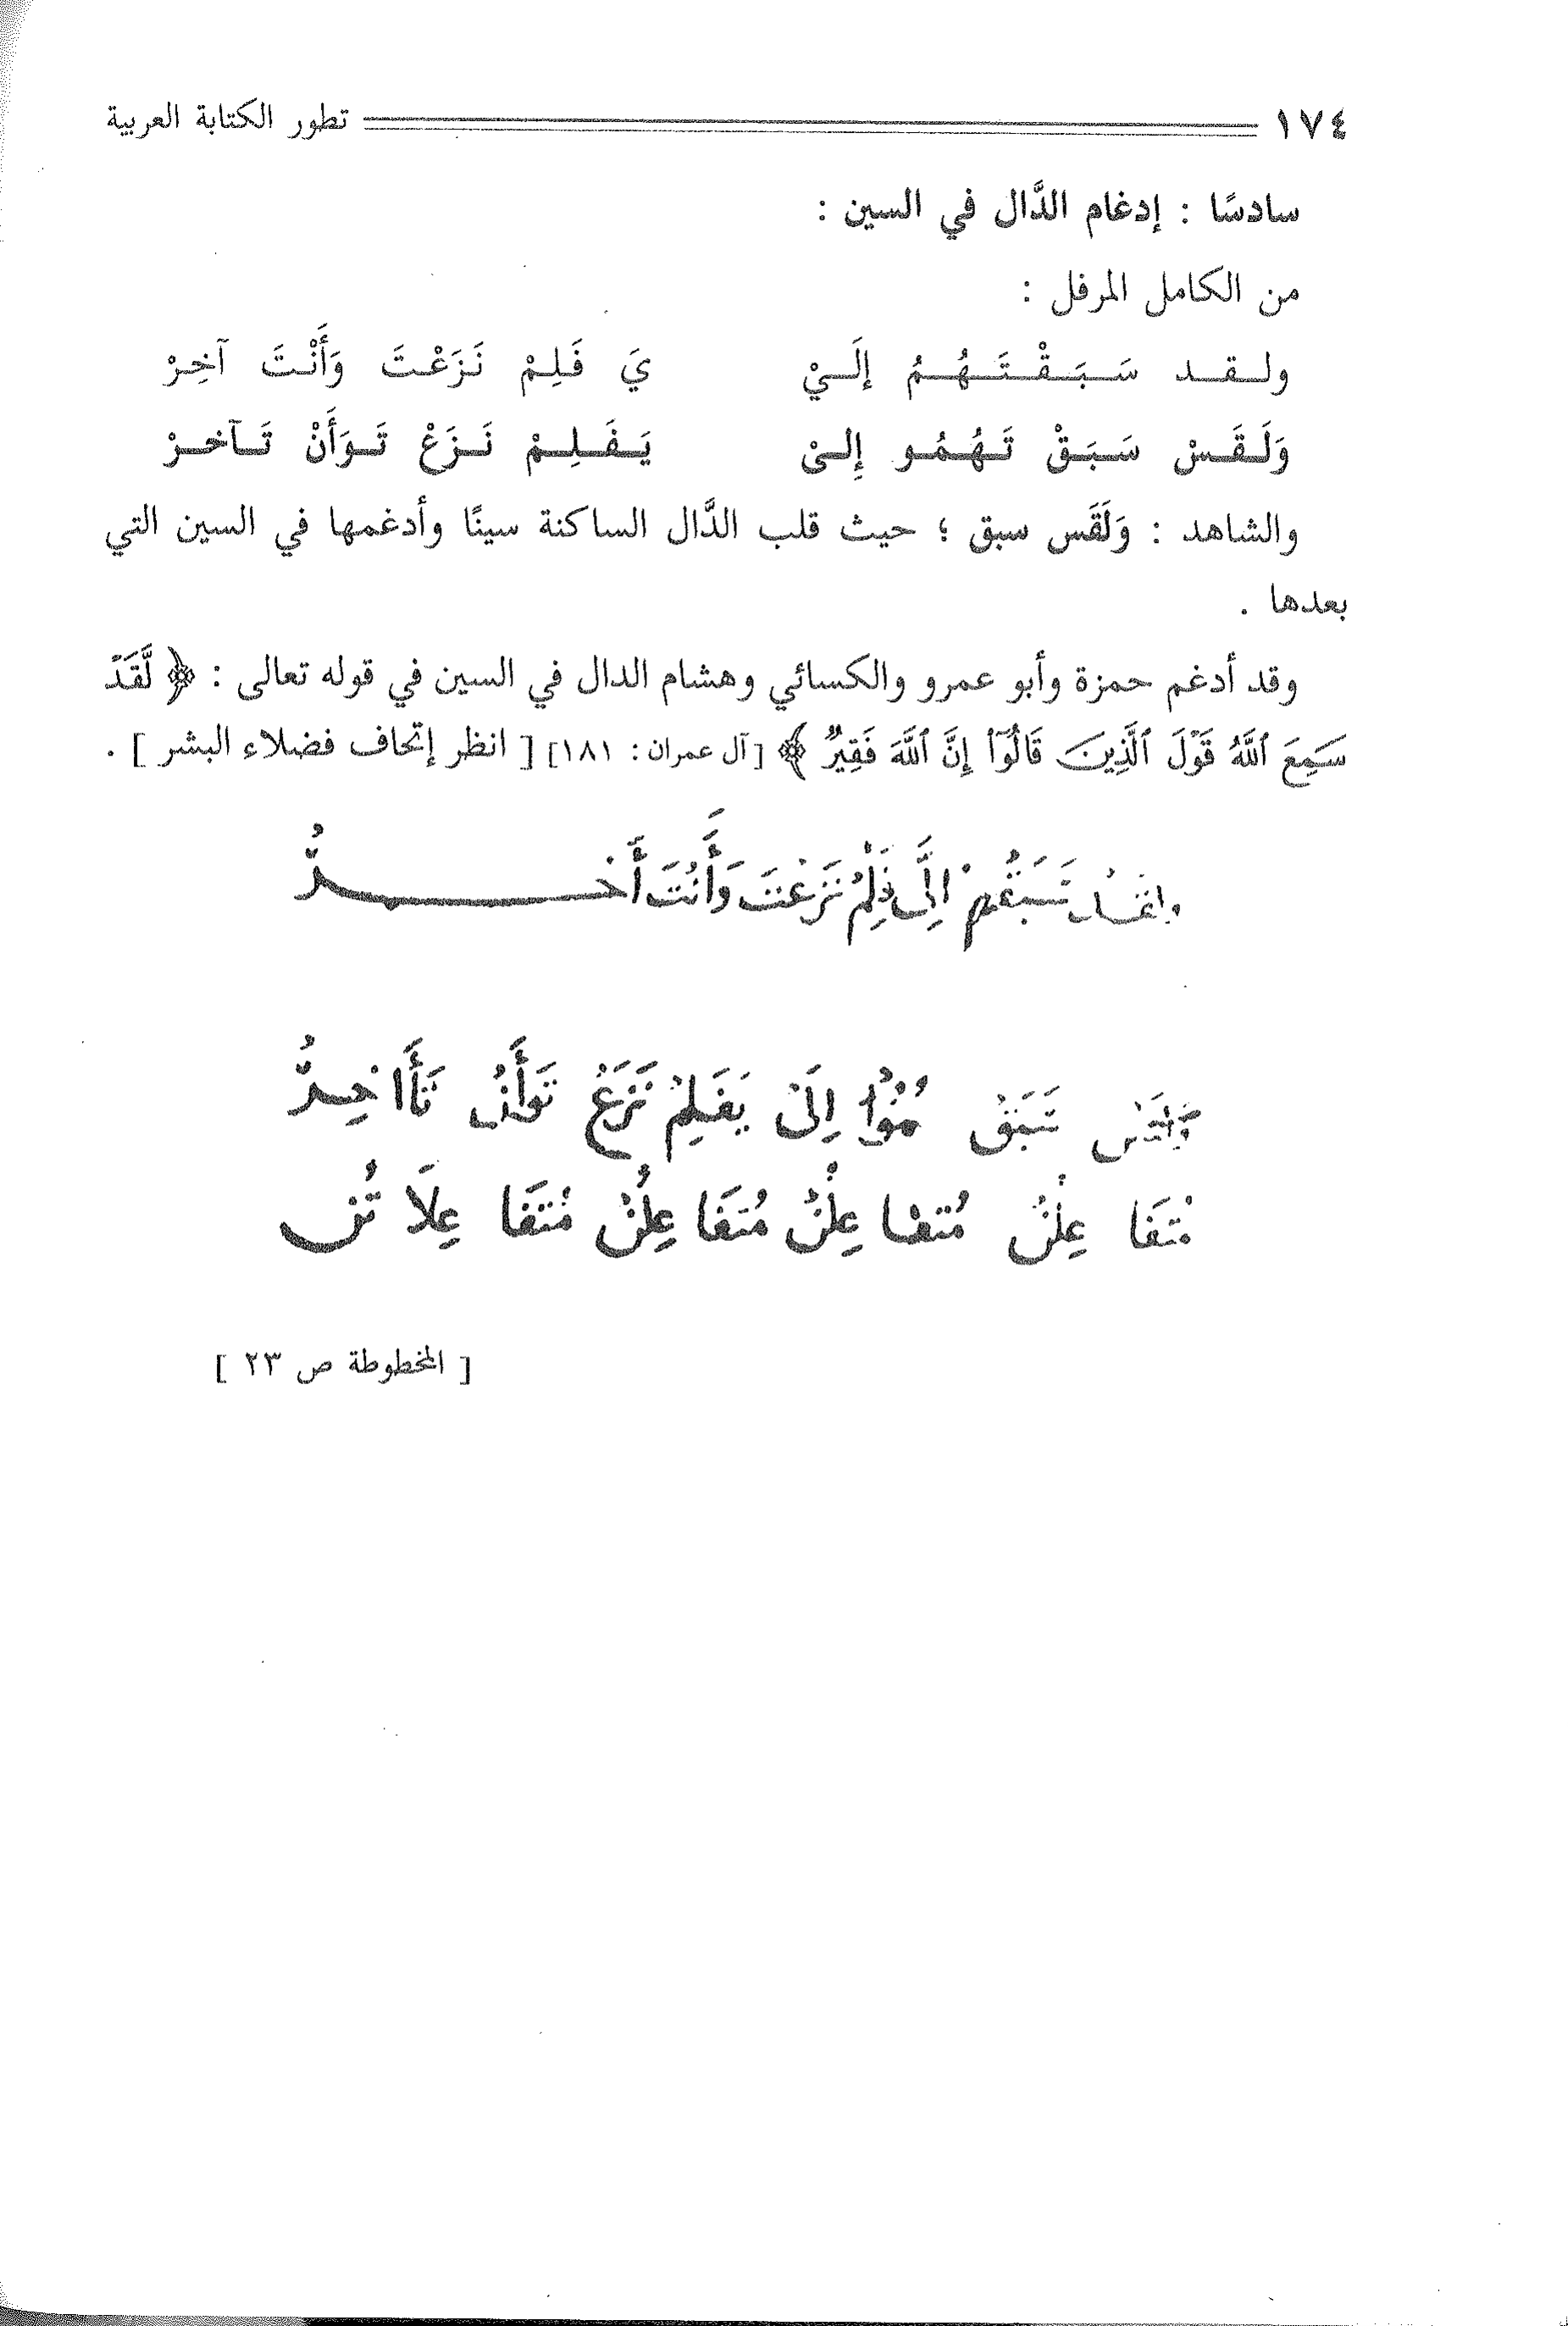 ١٧٤ تطور الكتابة العربية
سادسًا : إدغام الدَّال في السين :
من الكامل المرفل :
ولـقـد سَـبَـقْـتَـهُـمُ إلَـيْ يَ فَـلِـمْ نَـزَعْـتَ وَأَنْـتَ آخِـرْ
وَلَـقَـسْ سَـبَـقْ تَـهُـمُـو إِلـىْ يَـفَـلِـمْ نَـزَعْ تَـوَأَنْ تَـآخـرْ
والشاهد : وَلَقَس سبق ؛ حيث قلب الدَّال الساكنة سينًا وأدغمها في السين التي
بعدها .
وقد أدغم حمزة وأبو عمرو والكسائي وهشام الدال في السين في قوله تعالى : ﴿ لَّقَدْ
سَمِعَ ٱللَّهُ قَوْلَ ٱلَّذِينَ قَالُوٓا۟ إِنَّ ٱللَّهَ فَقِيرٌ ﴾ [آل عمران : ١٨١] [ انظر إتحاف فضلاء البشر ] .
إِلَى فَلِمْ نَزَعْتَ وَأَنْتَ
إِلَىْ يَفَلِمْ نَزَعْ تَوَأَنْ
مُتَفَا عِلُنْ مُتَفَا عِلُنْ مُتَفَا عِلُنْ مُتَفَا عِلَا تُن
[ المخطوطة ص ٢٣ ]